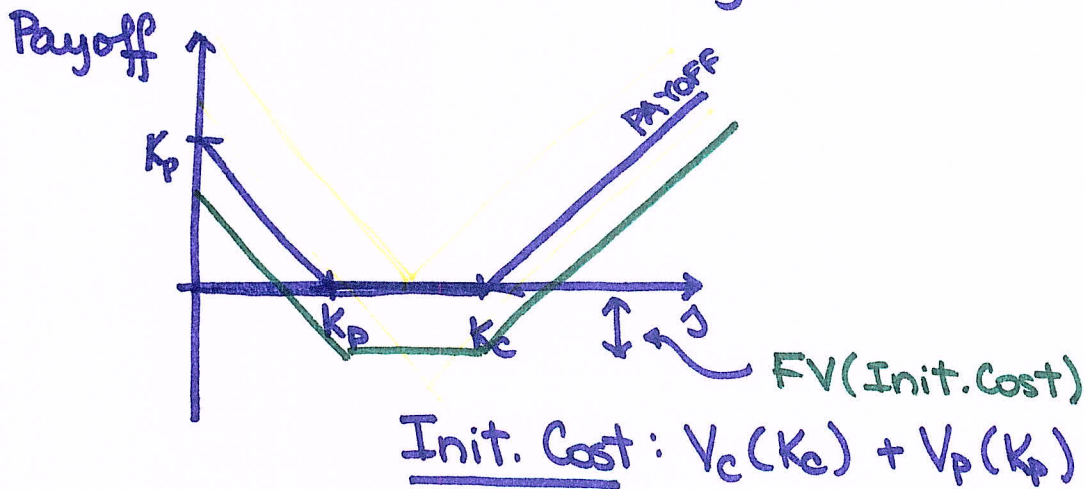 Payoff
PAYOFF
Kp
Kp
Kc
s
FV(Init. Cost)
Init. Cost: Vc(Kc) + Vp(Kp)